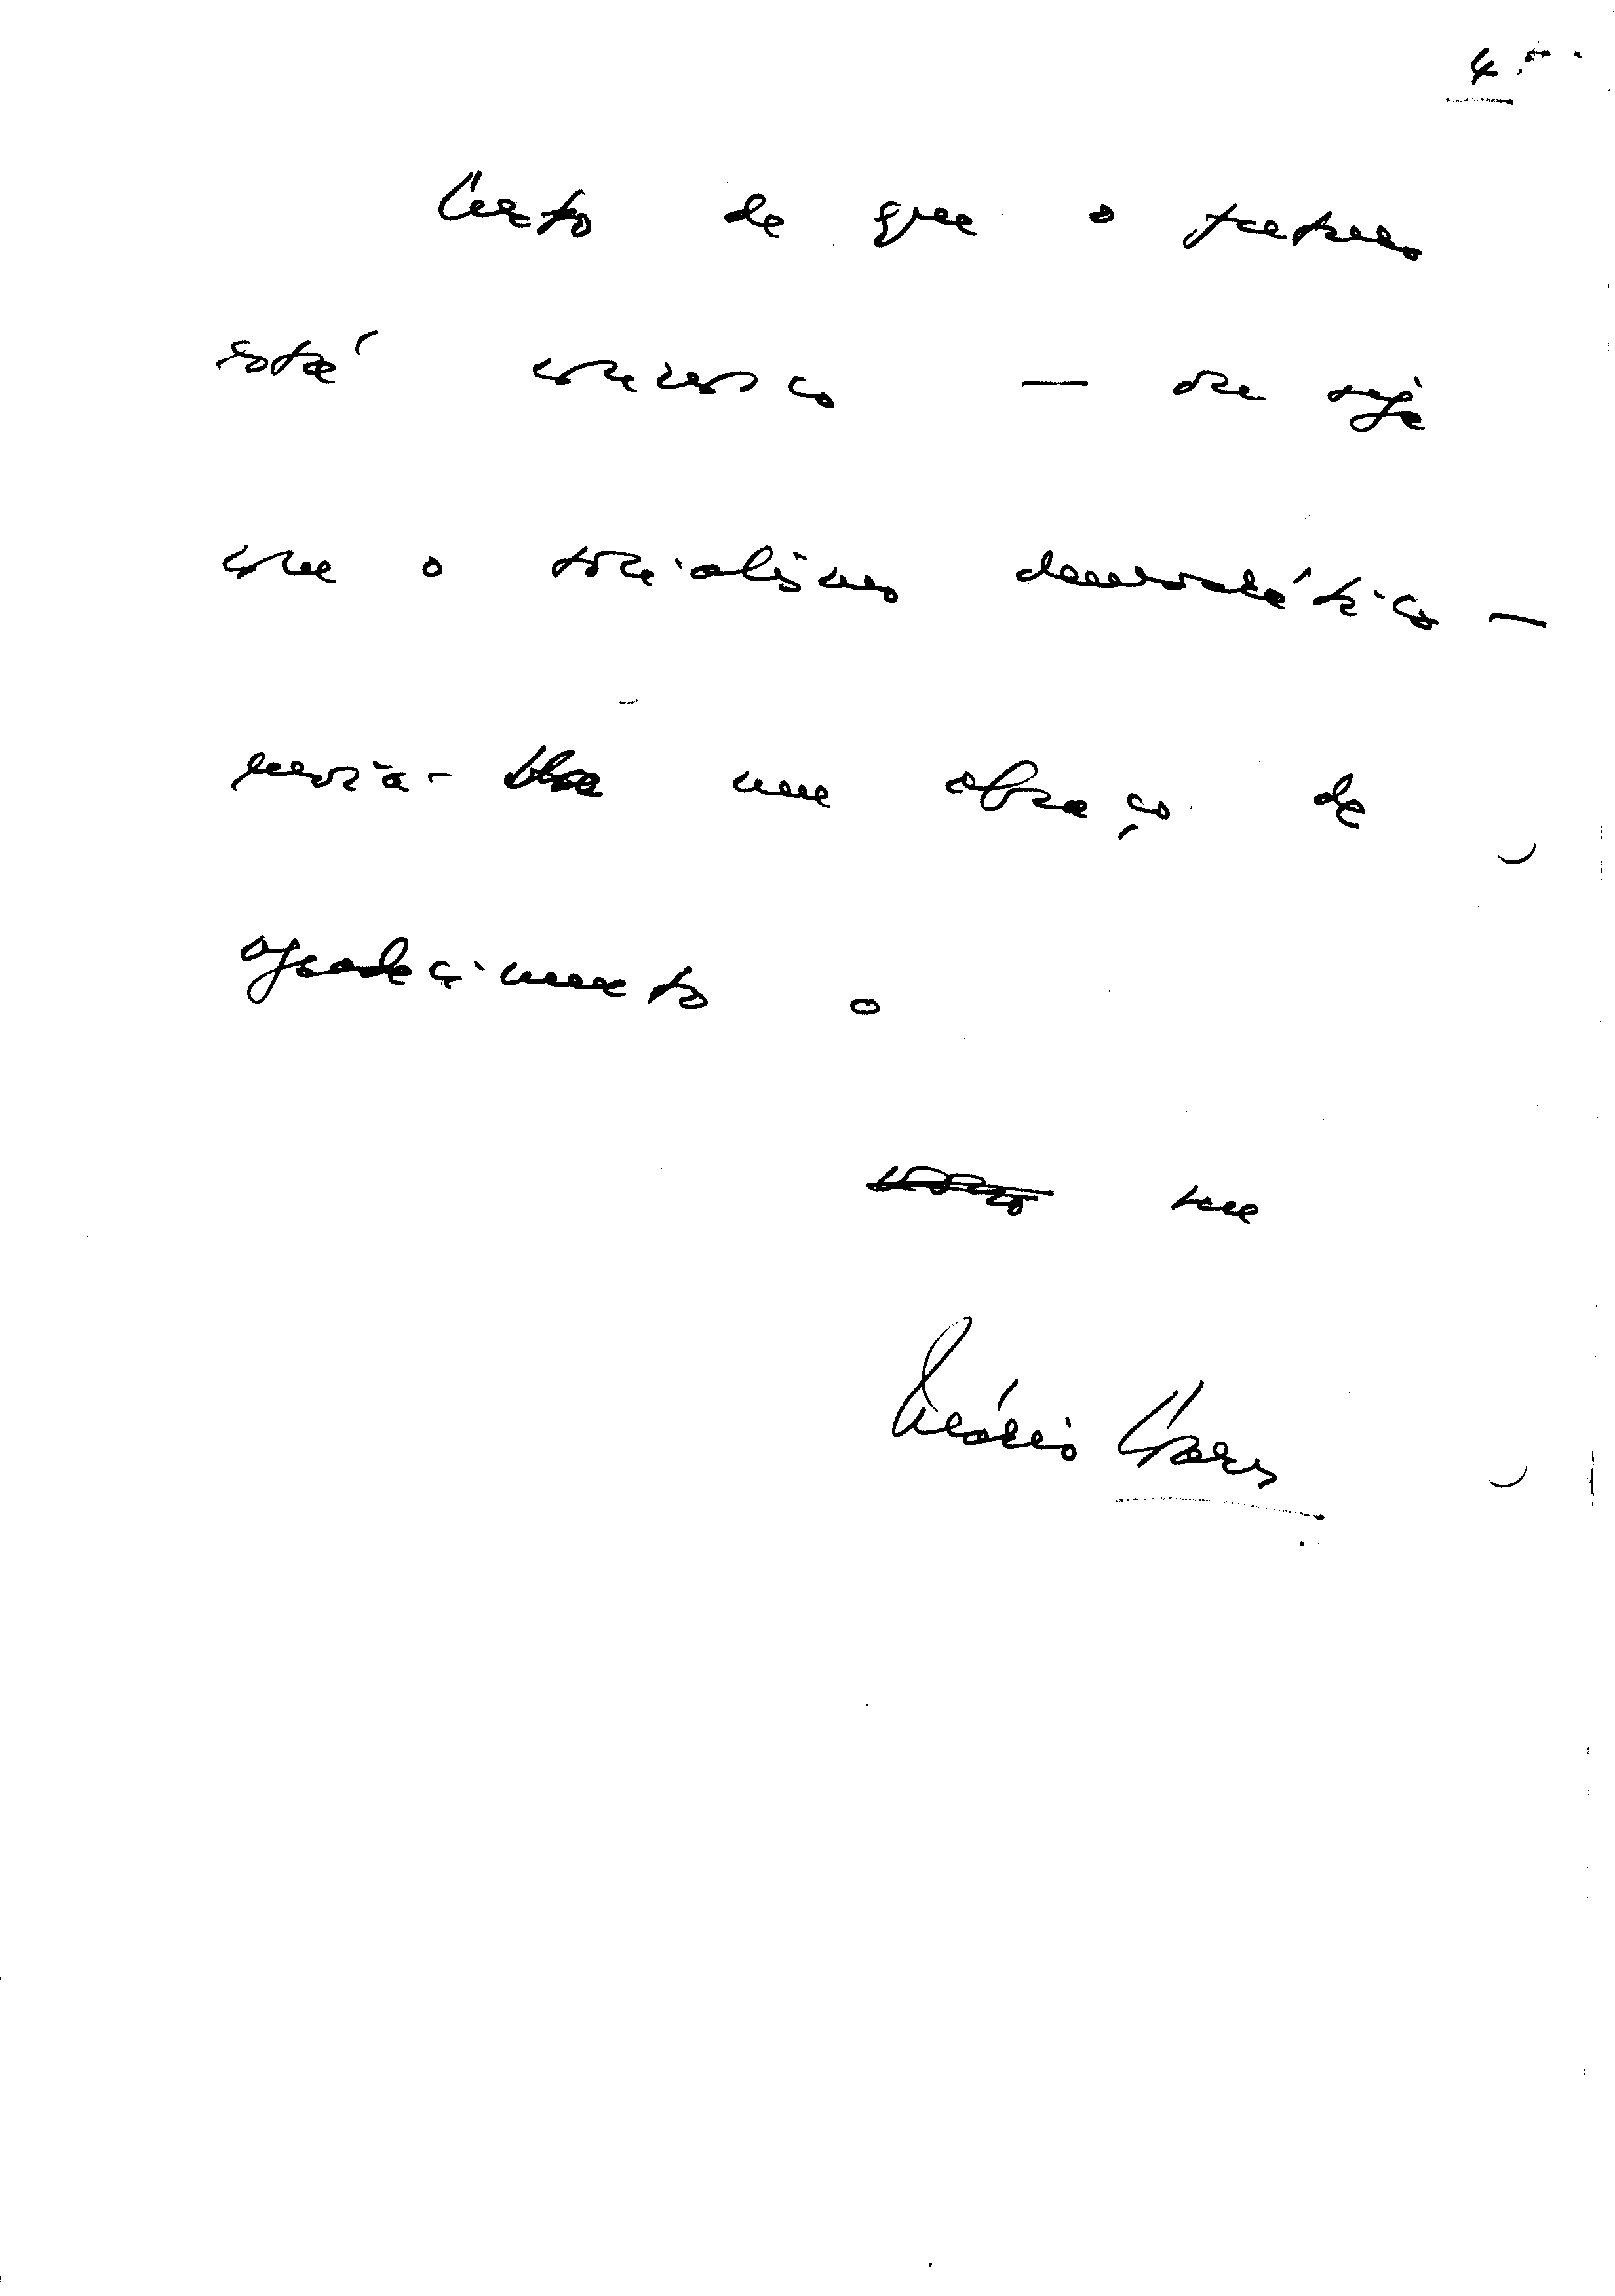 4
Certo de que o futuro
está connosco — ou seja
com o socialismo democrático —
envia- um abraço de
agradecimento o
seu
Mário Soares